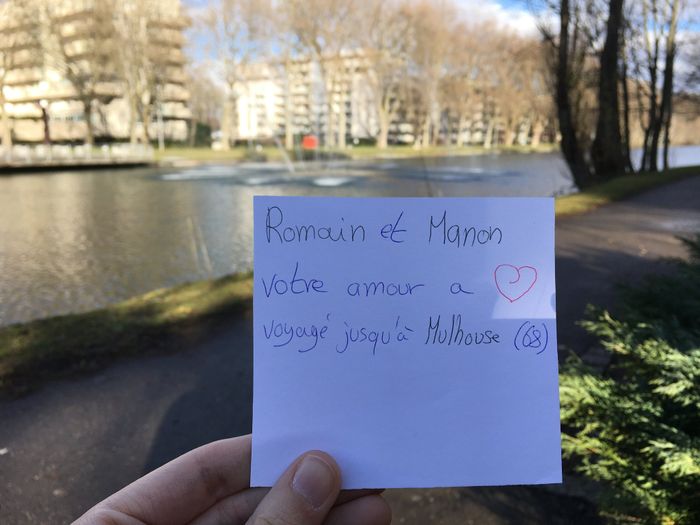 Romain et Manon
votre amour a
voyagé jusqu'à Mulhouse (68)